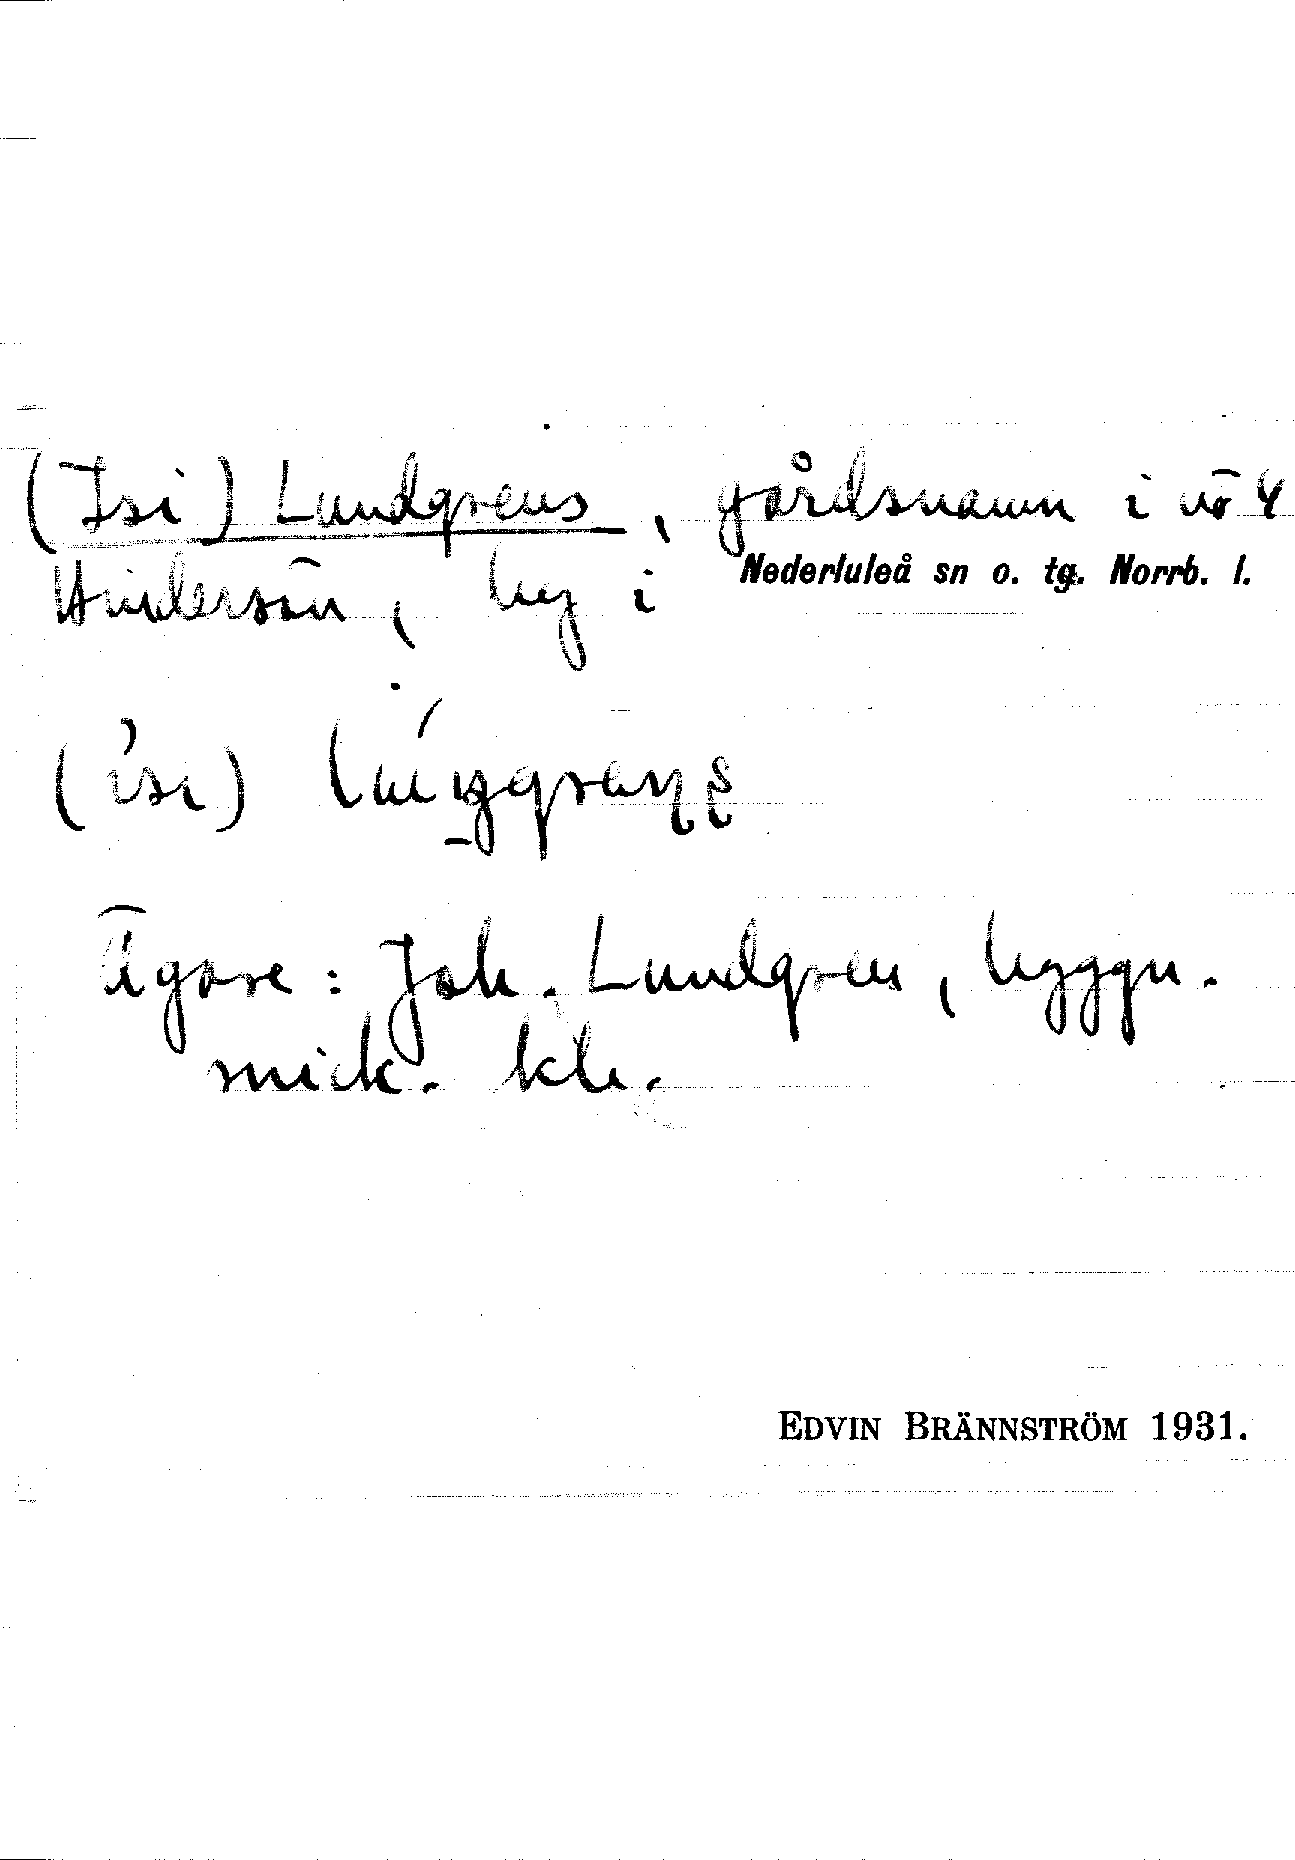 (Isi) Lundgrens, gårdsnamn i nö 4
Hindersön, by i Nederluleå sn o. tg. Norrb. l.
(isi)
Ägare: Joh. Lundgren, byggn.
snick.
EDVIN BRÄNNSTRÖM 1931.